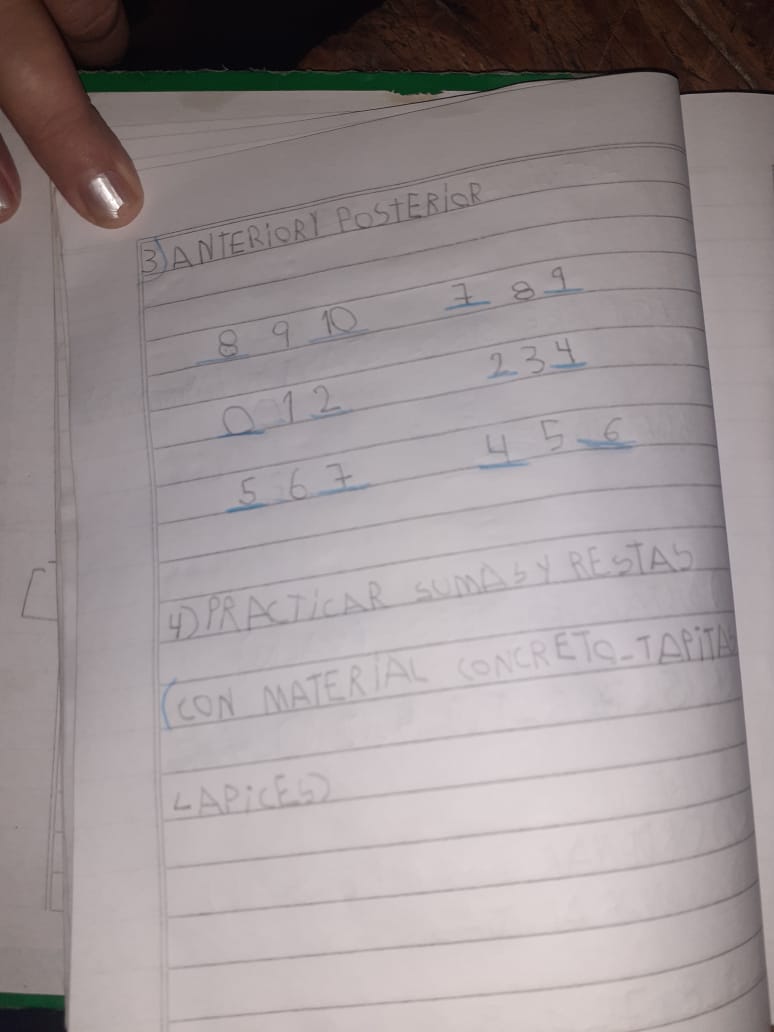 3) ANTERIOR Y POSTERIOR
8 9 10 7 8 9
0 1 2 2 3 4
5 6 7 4 5 6
4) PRACTICAR SUMAS Y RESTAS
(CON MATERIAL CONCRETO-TAPITA
LAPICES)